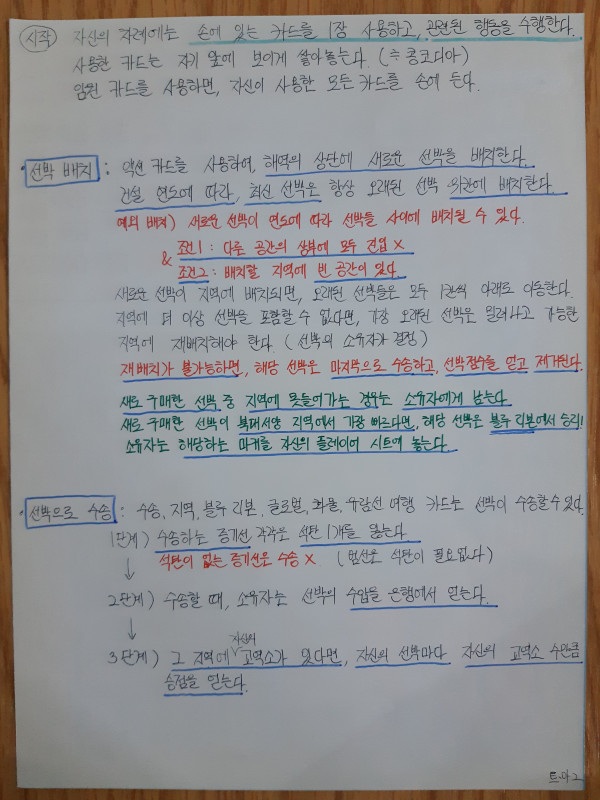 시작 자신의 차례에는 손에 있는 카드를 1장 사용하고, 관련된 행동을 수행한다.
사용한 카드는 자기 앞에 보이게 쌓아놓는다. (≒ 콩코디아)
임원 카드를 사용하면, 자신이 사용한 모든 카드를 손에 든다.
• 선박 배치 : 액션 카드를 사용하여, 해역의 상단에 새로운 선박을 배치한다.
건설 연도에 따라, 최신 선박은 항상 오래된 선박 위칸에 배치한다.
예외 배치) 새로운 선박이 연도에 따라 선박들 사이에 배치될 수 있다.
& 조건1 : 다른 공간의 상부에 모두 진입 X
조건2 : 배치할 지역에 빈 공간이 있다.
새로운 선박이 지역에 배치되면, 오래된 선박들은 모두 1칸씩 아래로 이동한다.
지역에 더 이상 선박을 포함할 수 없다면, 가장 오래된 선박은 밀려나고 가능한
지역에 재배치해야 한다. (선박의 소유자가 결정)
재배치가 불가능하면, 해당 선박은 마지막으로 수송하고, 선박점수를 얻고 제거된다.
새로 구매한 선박 중 지역에 못들어가는 경우는 소유자에게 남는다.
새로 구매한 선박이 북대서양 지역에서 가장 빠르다면, 해당 선박은 블루 리본에서 승리!
소유자는 해당하는 마커를 자신의 플레이어 시트에 놓는다.
• 선박으로 수송 : 수송, 지역, 블루 리본, 글로벌, 화물, 유람선 여행 카드는 선박이 수송할 수 있다.
1단계) 수송하는 증기선 각각은 석탄 1개를 잃는다.
석탄이 없는 증기선은 수송 X (범선은 석탄이 필요없다)
↓
2단계) 수송할 때, 소유자는 선박의 수입을 은행에서 얻는다.
↓
3단계) 그 지역에 자신의 교역소가 있다면, 자신의 선박마다 자신의 교역소 수만큼
승점을 얻는다.
트·아 2